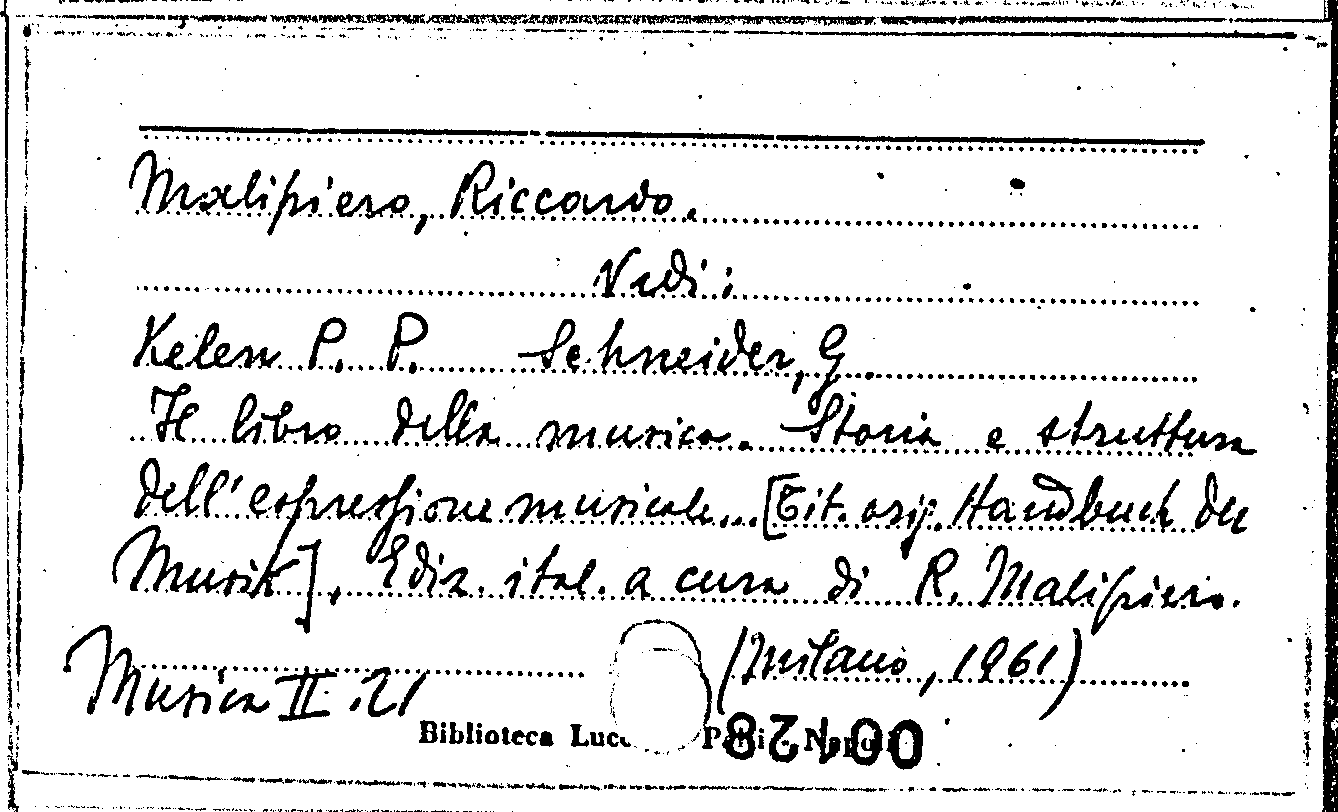 Malipiero, Riccardo.
Vedi:
Kelen P. P. Schneider, G.
Il libro della musica. Storia e struttura
dell'espressione musicale... [Tit. orig. Handbuch der
Musik], Ediz. ital. a cura di R. Malipiero.
(Milano, 1961)
Musica II. 21
Biblioteca